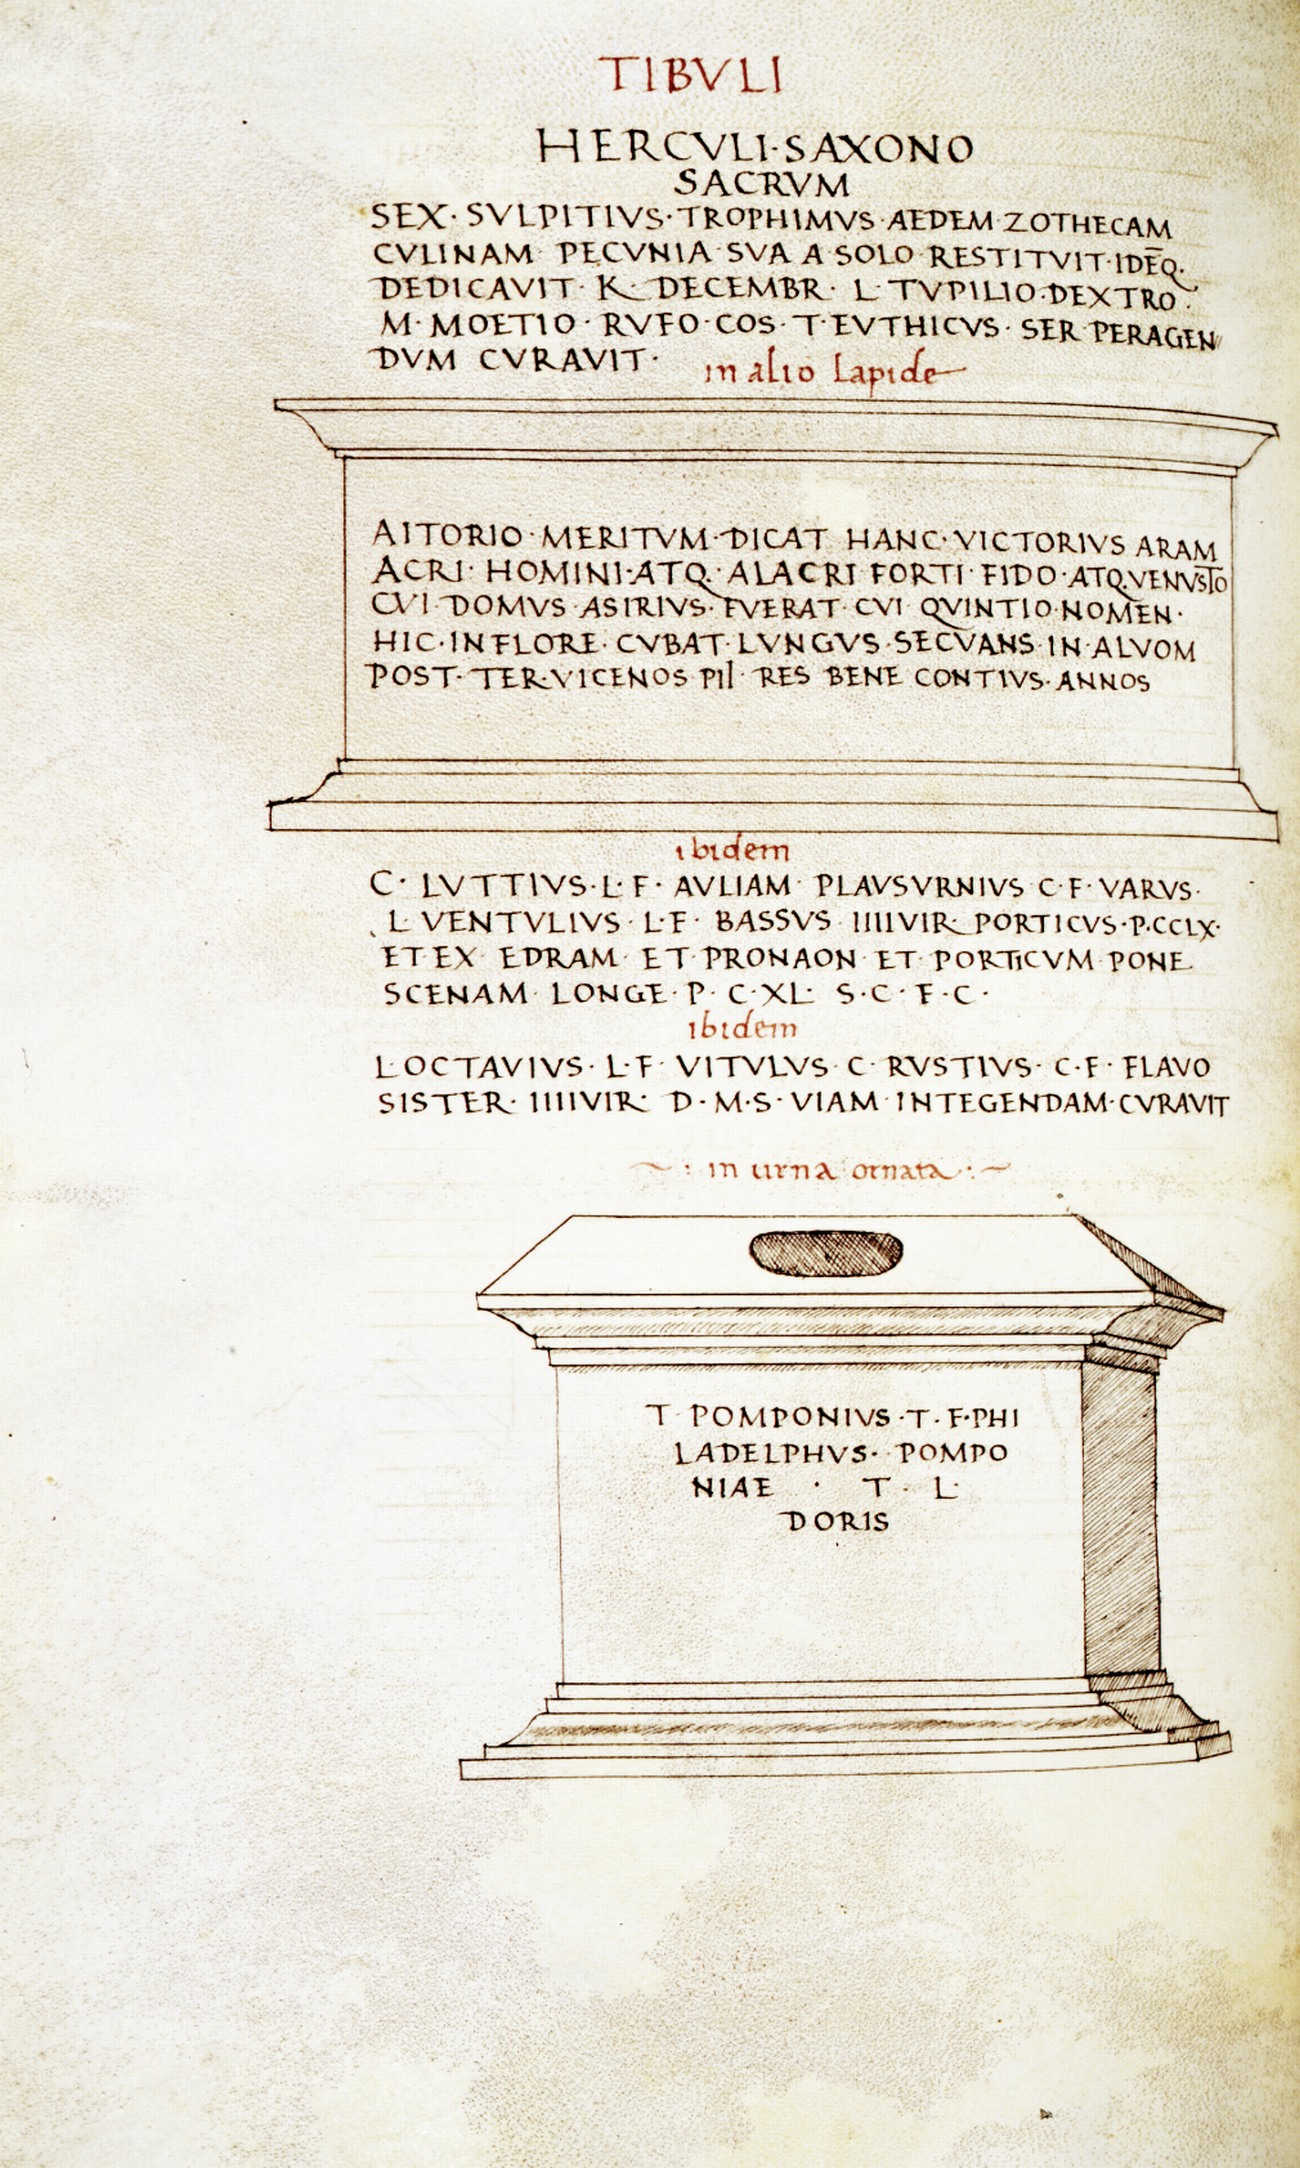 TIBVLI
HERCVLI·SAXONO
SACRVM
SEX· SVLPITIVS·TROPHIMVS·AEDEM·ZOTHECAM
CVLINAM PECVNIA·SVA A·SOLO·RESTITVIT·IDĒQ·
DEDICAVIT· K· DECEMBR· L·TVPILIO·DEXTRO·
M·MOETIO·RVFO·COS·T·EVTHICVS·SER·PERAGEN
DVM CVRAVIT·
in alio lapide
AITORIO·MERITVM·DICAT HANC·VICTORIVS ARAM
ACRI·HOMINI·ATQ·ALACRI FORTI·FIDO·ATQ·VENVSTO
CVI·DOMVS·ASIRIVS·FVERAT·CVI QVINTIO·NOMEN·
HIC·IN FLORE·CVBAT·LVNGVS·SECVANS·IN·ALVOM
POST·TER·VICENOS PII RES BENE CONTIVS·ANNOS
ibidem
C· LVTTIVS·L·F· AVLIAM PLAVSVRNIVS C·F·VARVS·
L VENTVLIVS·L·F· BASSVS IIIIVIR PORTICVS·P·CCLX·
ET EX EDRAM ET PRONAON ET PORTICVM PONE
SCENAM LONGE·P·C·XL· S·C·F·C·
ibidem
L·OCTAVIVS·L·F VITVLVS C·RVSTIVS·C·F·FLAVO
SISTER·IIIIVIR D·M·S·VIAM INTEGENDAM·CVRAVIT
~ : in urna ornata · : ~
T POMPONIVS·T·F·PHI
LADELPHVS· POMPO
NIAE · T· L·
DORIS